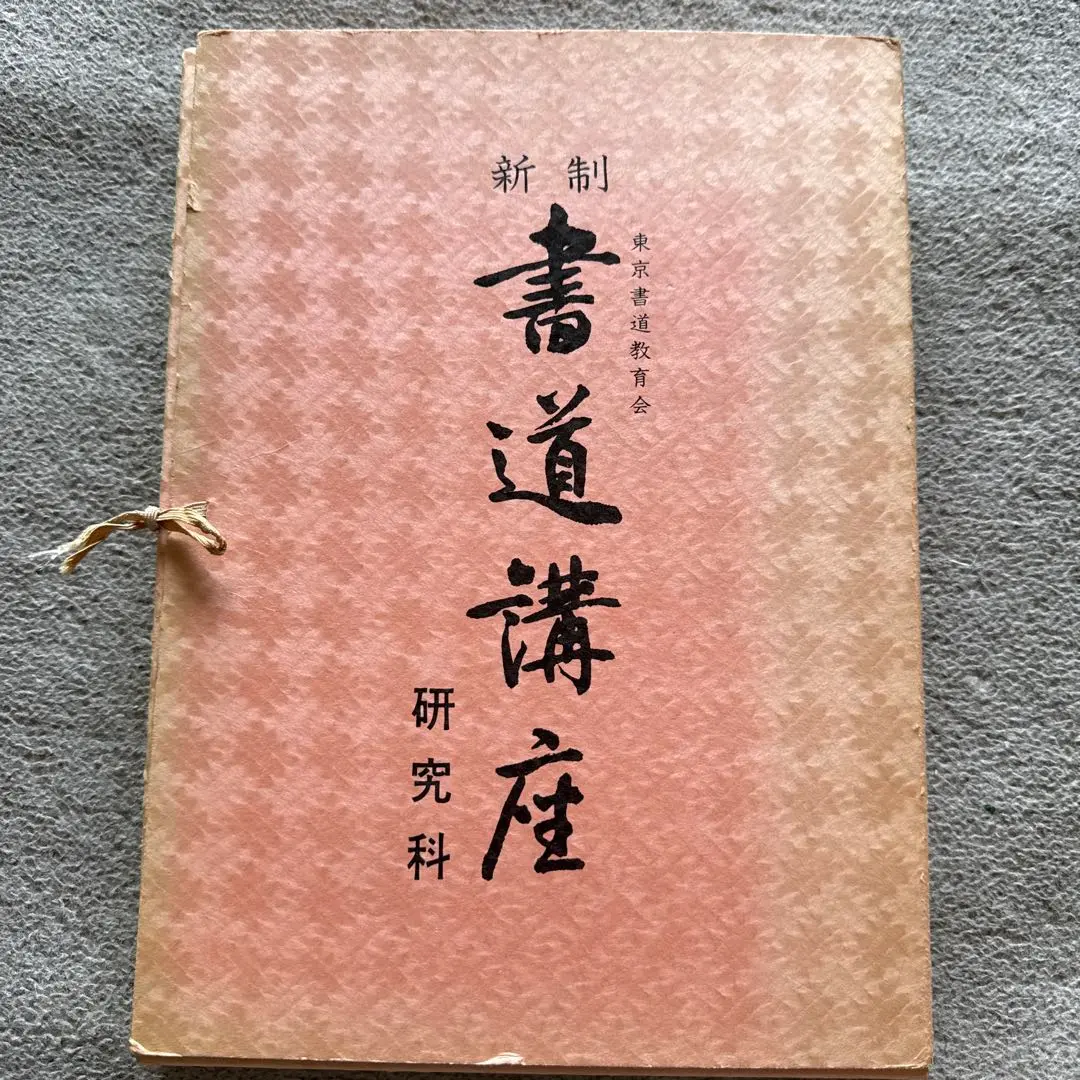 新制
東京書道教育会
書道講座
研究科